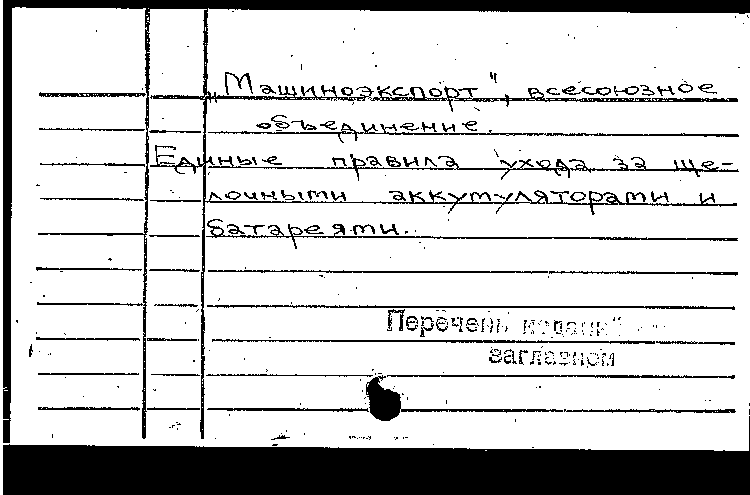 „Машиноэкспорт", всесоюзное
объединение.
Единые правила ухода за ще-
лочными аккумуляторами и
батареями.
Перечень изданий
заглавном